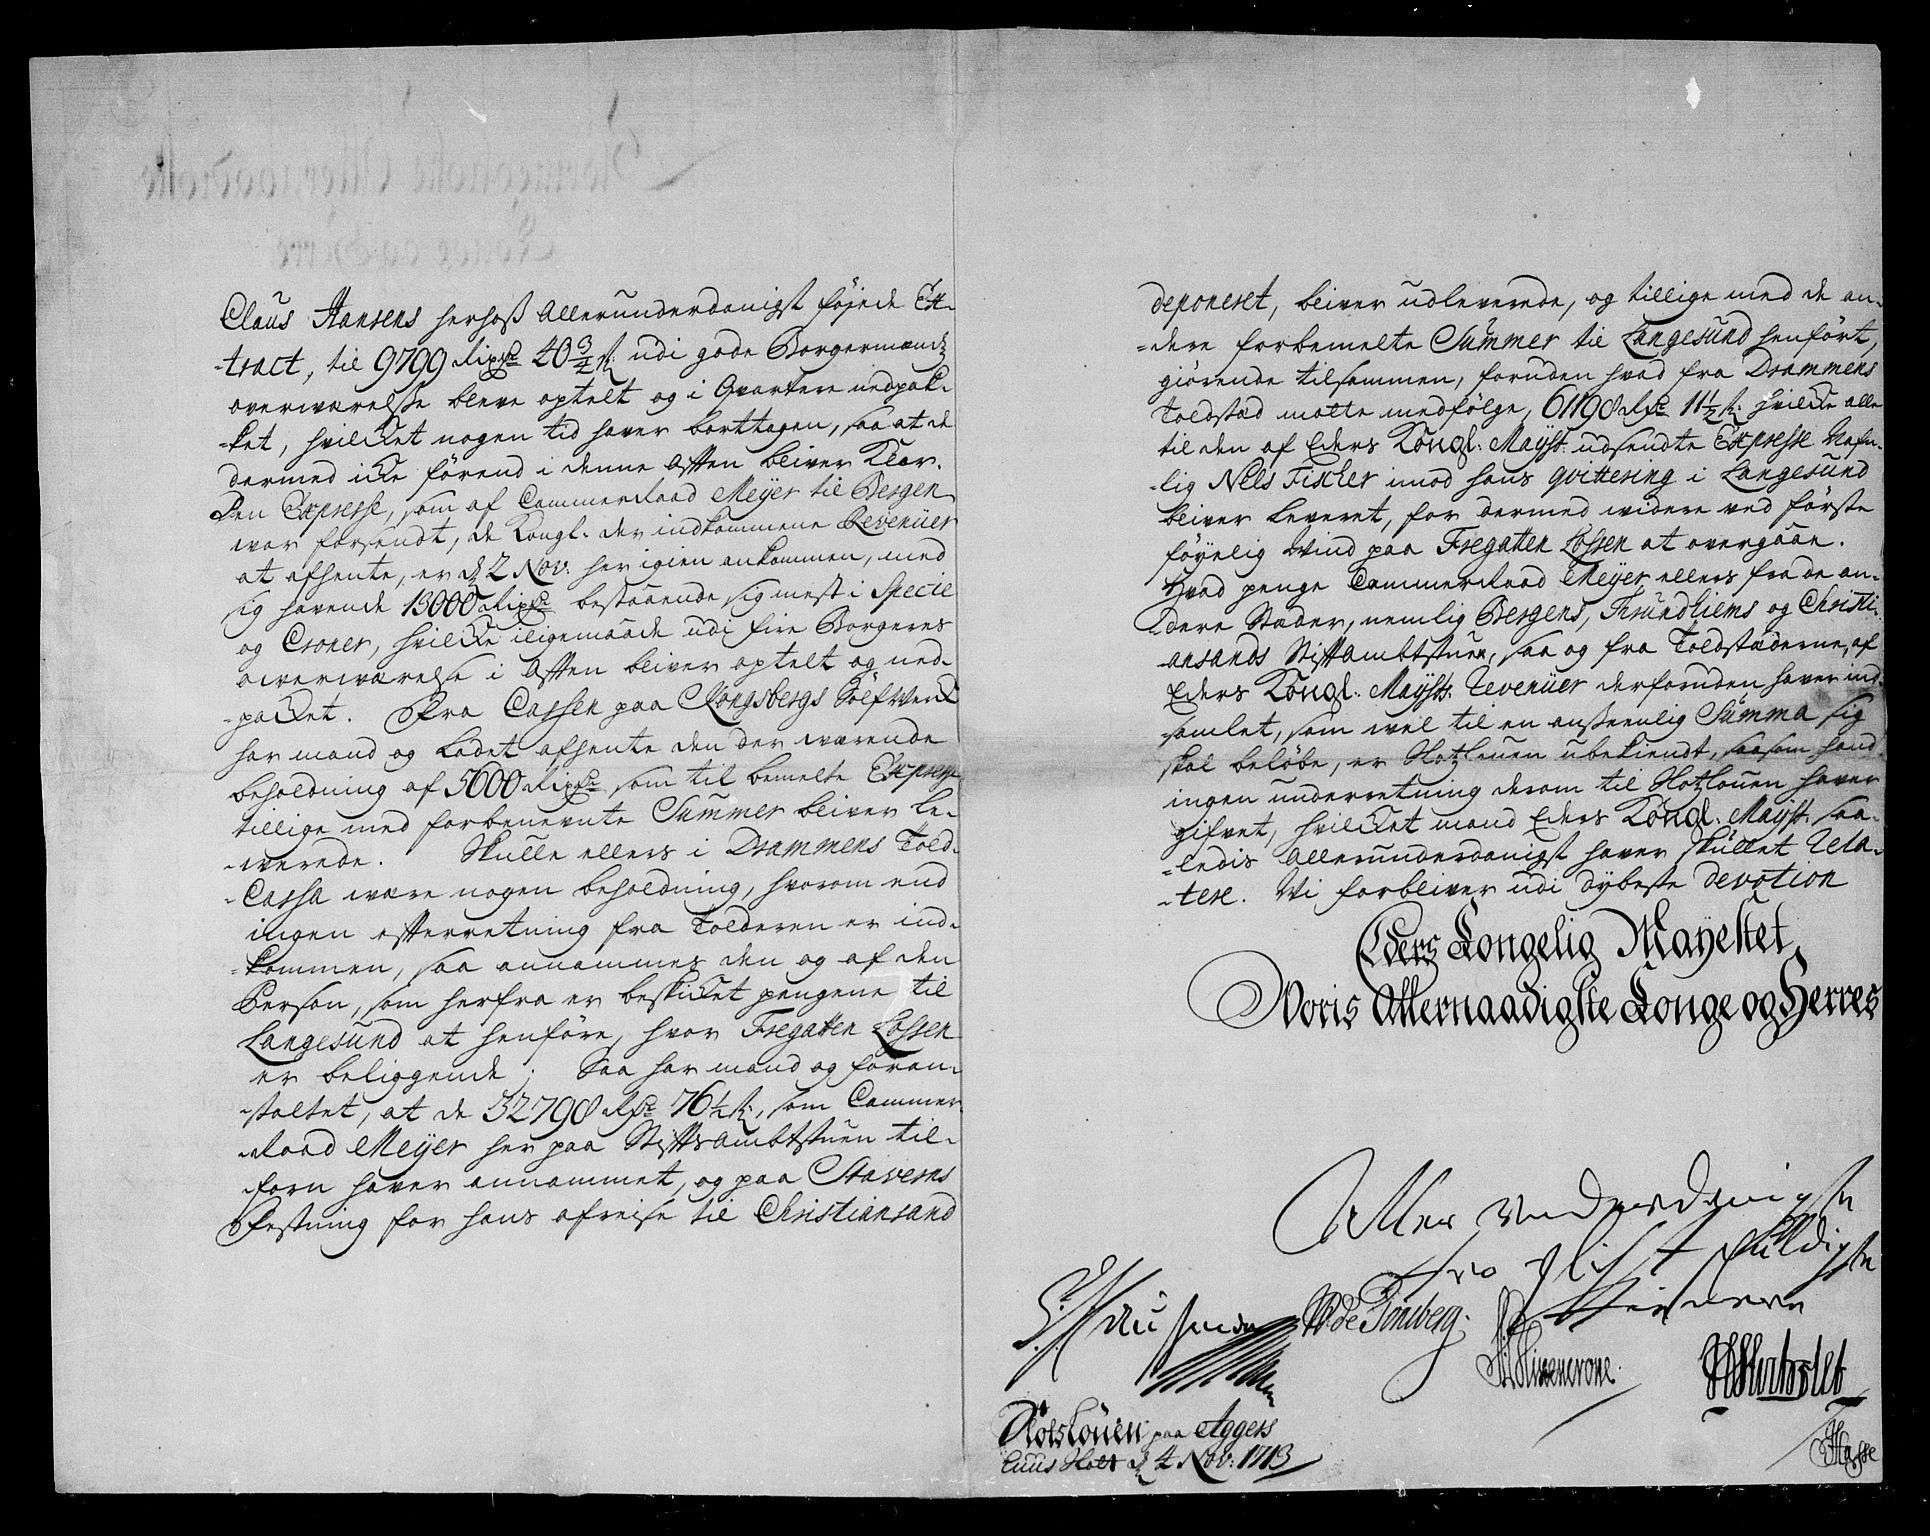 Claus Hansens herhoß allerunderdanigst föjede Ex-
-tract, til 9799 Rixdr 40 3/4 s. udi gode Borgermænds
overværelsse bleve optelt og i Qvartere nedpak-
-ket, hvilcket nogen tid haver borttagen, saa at de
dermed icke førend i denne Aften bliver Klar.
Den Expresse, som af CammerRaad Meÿer til Bergen
war forsendt, de Kongl. der indkommene Revenüer
at afhente, er d. 2 Nov: her igien ankommen, med
sig havende 13000 Rixdr bestaaende sig mest i Specie
og Croner, hvilcke iligemaade udi fire Borgeres
owerværelse i Aften bliver optelt og ned-
-packet. Fra Cassen paa Kongsbergs Sölfverck
har mand og Ladet afhente den der wærende
beholdning af 5600 Rixdr, som til bemelte Expresse
tillige med forbenevnte Summer bliver le-
-werede. Skulle ellers i Drammens Told-
-Cassa wære nogen beholdning, hvorom end
ingen efterretning fra Tolderen er ind-
-kommen, saa annammes den og af den
Person, som herfra er beskicket pengene til
Langesund at henföre, hvor Fregatten Lossen
er beliggende; Saa har mand og foran-
-staltet, at de 32790 Rdr 76 1/2 s., som Cammer
-Raad Meÿer her paa StiftsAmbtstuen til-
-forn haver annammet, og paa Staverns
Festning for hans afreise til Christiansand
deponeret, bliver udleverede, og tillige med de an-
-dere forbemelte Summer til Langesund henført,
giørende tilsammen, foruden hvad fra Drammens
Toldstæd motte medfölge, 61190 Rdr 11 1/2 s. hvilcke alle
til den af Eders Kongl: Mayst: udsendte Expresse Nafn-
-lig Nels Fischer imod hans qvittering i Langesund
bliver leveret, for dermed widere ved förste
föyelig Wind paa Fregatten Lossen at overgaae.
Hvad penge CammerRaad Meÿer ellers fra de an-
-dere Stæder, nemlig Bergens, Thrundhiems og Christi-
-ansands StiftAmbtstuer, saa og fra Toldstæderne, af
Eders Kongl: Maysts: Revenüer derforuden haver ind-
-samlet, som wel til en anßeenlig Summa sig
skal beløbe, er Slotzlouen ubekiendt, saasom hand
ingen underretning derom til Slotzlouen haver
gifvet, hvilcket mand Eders Kongl: Mayst: saa-
-ledis allerunderdanigst haver skullet Rela-
-tere. Vi forbliver udi dybeste devotion
Eders Kongelig Mayestet
Woris Allernaadigste Konge og Herres
Aller underdanigste
troe pligst skuldigste
tienere
F. Hausmann W de Tonsberg.
Slotslouen paa Aggers
huus Slott d. 4 Nov: 1713